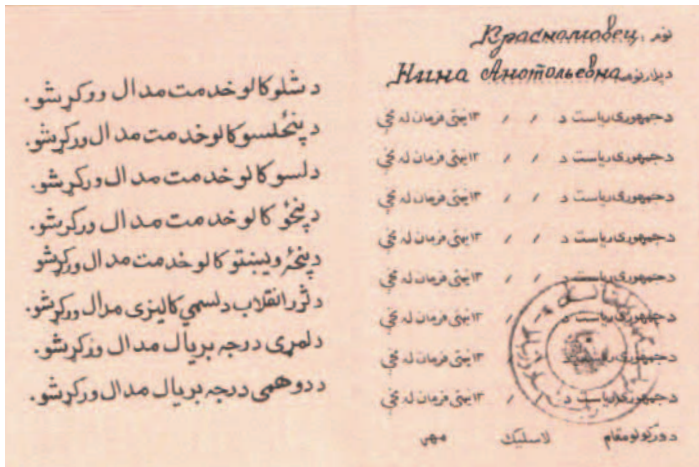 نوم
د پلار نوم Нина Анотольевна
د جمهوری ریاست د / / ۱۳ نیټی فرمان له مخی
د جمهوری ریاست د / / ۱۳ نیټی فرمان له مخی
د جمهوری ریاست د / / ۱۳ نیټی فرمان له مخی
د جمهوری ریاست د / / ۱۳ نیټی فرمان له مخی
د جمهوری ریاست د / / ۱۳ نیټی فرمان له مخی
د جمهوری ریاست د / / ۱۳ نیټی فرمان له مخی
د جمهوری ریاست د / / ۱۳ نیټی فرمان له مخی
د جمهوری ریاست د / / ۱۳ نیټی فرمان له مخی
د ورکولو مقام لاسلیک مهر
د شلو کالو خدمت مدال ورکړ شو.
د پنځلسو کالو خدمت مدال ورکړ شو.
د لسو کالو خدمت مدال ورکړ شو.
د پنځو کالو خدمت مدال ورکړ شو.
د پنځه ویشتو کالو خدمت مدال ورکړ شو
د ثور انقلاب د لسمی کالیزی مدال ورکړ شو.
د لمړی درجه بریال مدال ورکړ شو.
د دوهمی درجه بریال مدال ورکړ شو.